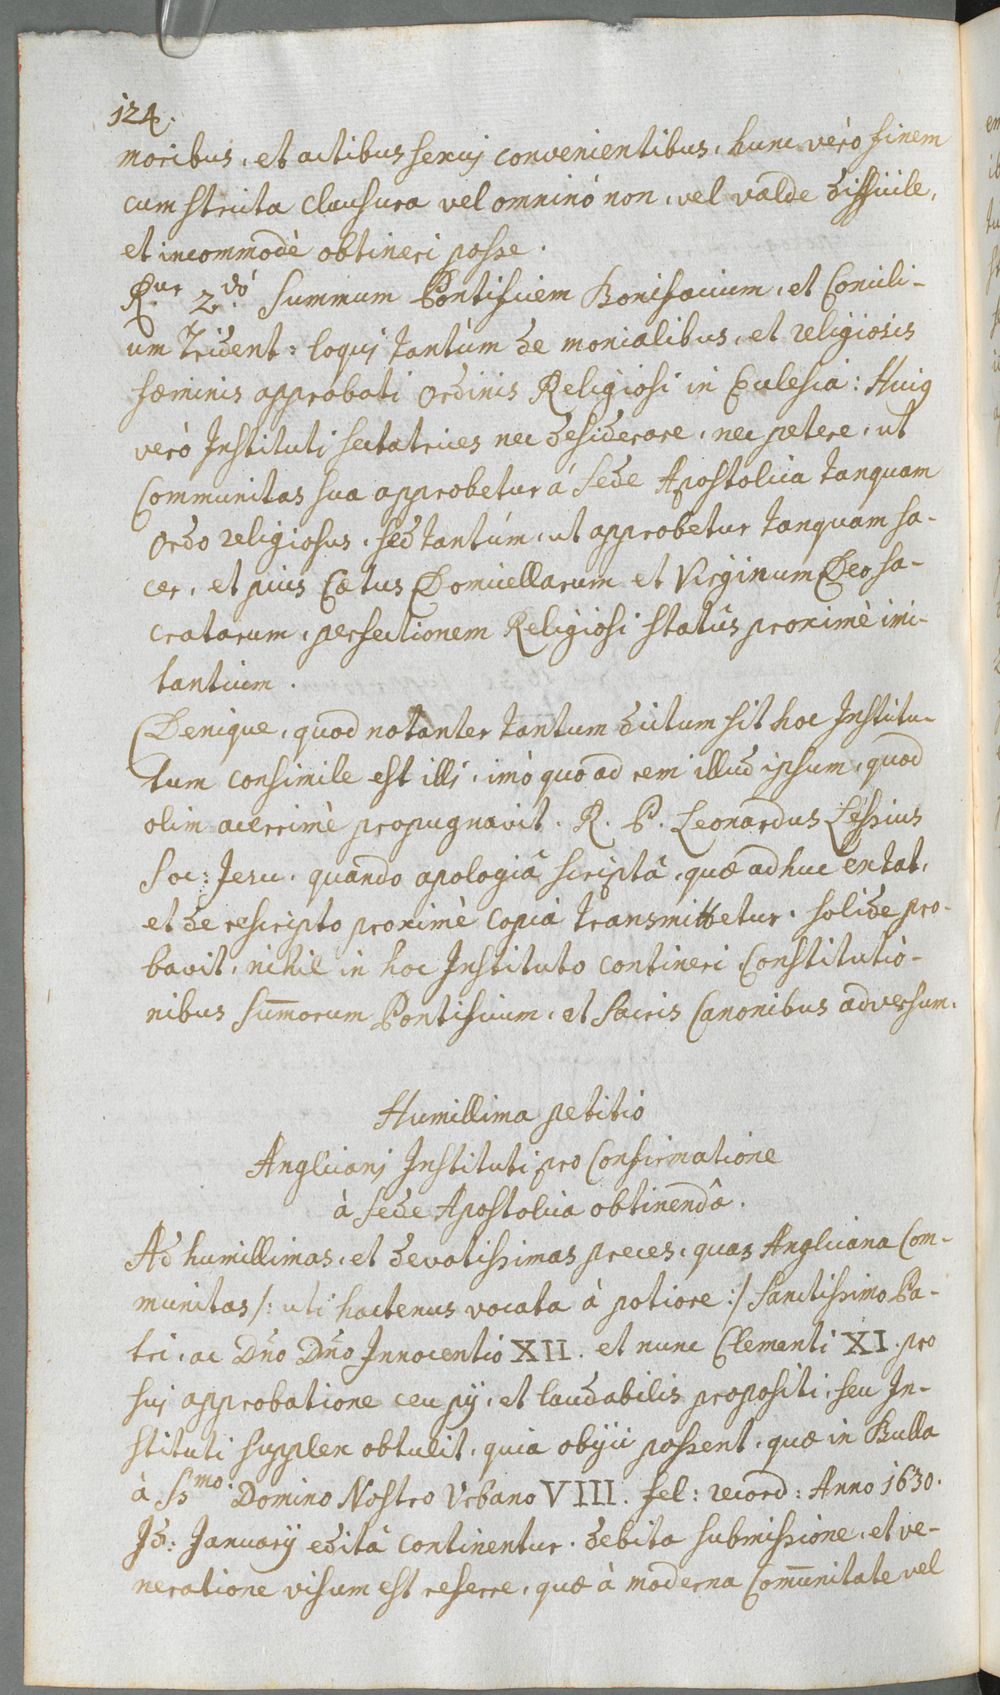 124.
moribus, et actibus sexûs convenientibus, hunc verò finem
cum stricta clausura vel omninò non, vel valde difficile,
et incommodè obtineri posse.
R.ur 2.dò Summum Pontificem Bonifacium, et Concili-
um Trident: loqui tantùm de monialibus, et religiosis
fœminis approbati ordinis Religiosi in Ecclesia: Huius
verò Instituti sectatrices nec desiderare, nec petere, ut
Communitas sua approbetur á Sede Apostolica tanquam
ordo religiosus, sed tantúm, ut approbetur tanquam sa-
cer, et pius Cœtus Domicellarum et Virginum Deo sa-
cratarum, perfectionem Religiosi statûs proximè imi-
tantium.
Denique, quod notanter tantum dictum sit hoc Institu-
tum consimile est illi, imò quo ad rem illud ipsum, quod
olim acerrimè propugnavit R. P. Leonardus Lessius
Soc: Jesu, quando apologiâ scriptâ, quæ adhuc extat,
et de rescripto proximè copia transmittetur, solide pro-
bavit, nihil in hoc Instituto contineri Constitutio-
nibus Sum̄orum Pontificum, et Sacris Canonibus adversum.
Humillima petitio
Anglicani Instituti pro Confirmatione
à Sede Apostolica obtinendâ.
Ad humillimas, et devotissimas preces, quas Anglicana Com-
munitas /: uti hactenus vocata à potiore :/ Sanctissimo Pa-
tri, ac Dn̄o Dn̄o Innocentio XII. et nunc Clementi XI. pro
sui approbatione ceu pij, et laudabilis propositi, seu In-
stituti supplex obtulit, quia obijci possent, quæ in Bulla
à Ss.mo Domino Nostro Urbano VIII. fel: record: Anno 1630.
Id: Januarij editâ continentur, debita submissione, et ve-
neratione visum est referre, quæ à moderna Com̄unitate vel